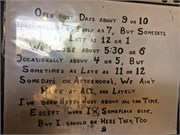 OPEN MOST DAYS ABOUT 9 OR 10
AS EARLY AS 7, BUT SOMEDAYS
AS LATE AS 12 OR 1
WE CLOSE ABOUT 5:30 OR 6
OCCASIONALLY ABOUT 4 OR 5, BUT
SOMETIMES AS LATE AS 11 OR 12
SOMEDAYS OR AFTERNOONS, WE AIN'T
HERE AT ALL, AND LATELY
I'VE BEEN HERE JUST ABOUT ALL THE TIME,
EXCEPT WHEN I'M SOMEPLACE ELSE,
BUT I SHOULD BE HERE THEN, TOO